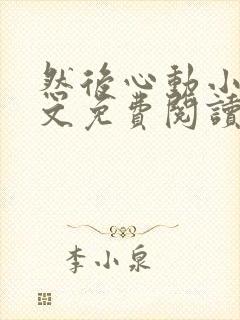 然後心動小
文免費閱讀
李小泉